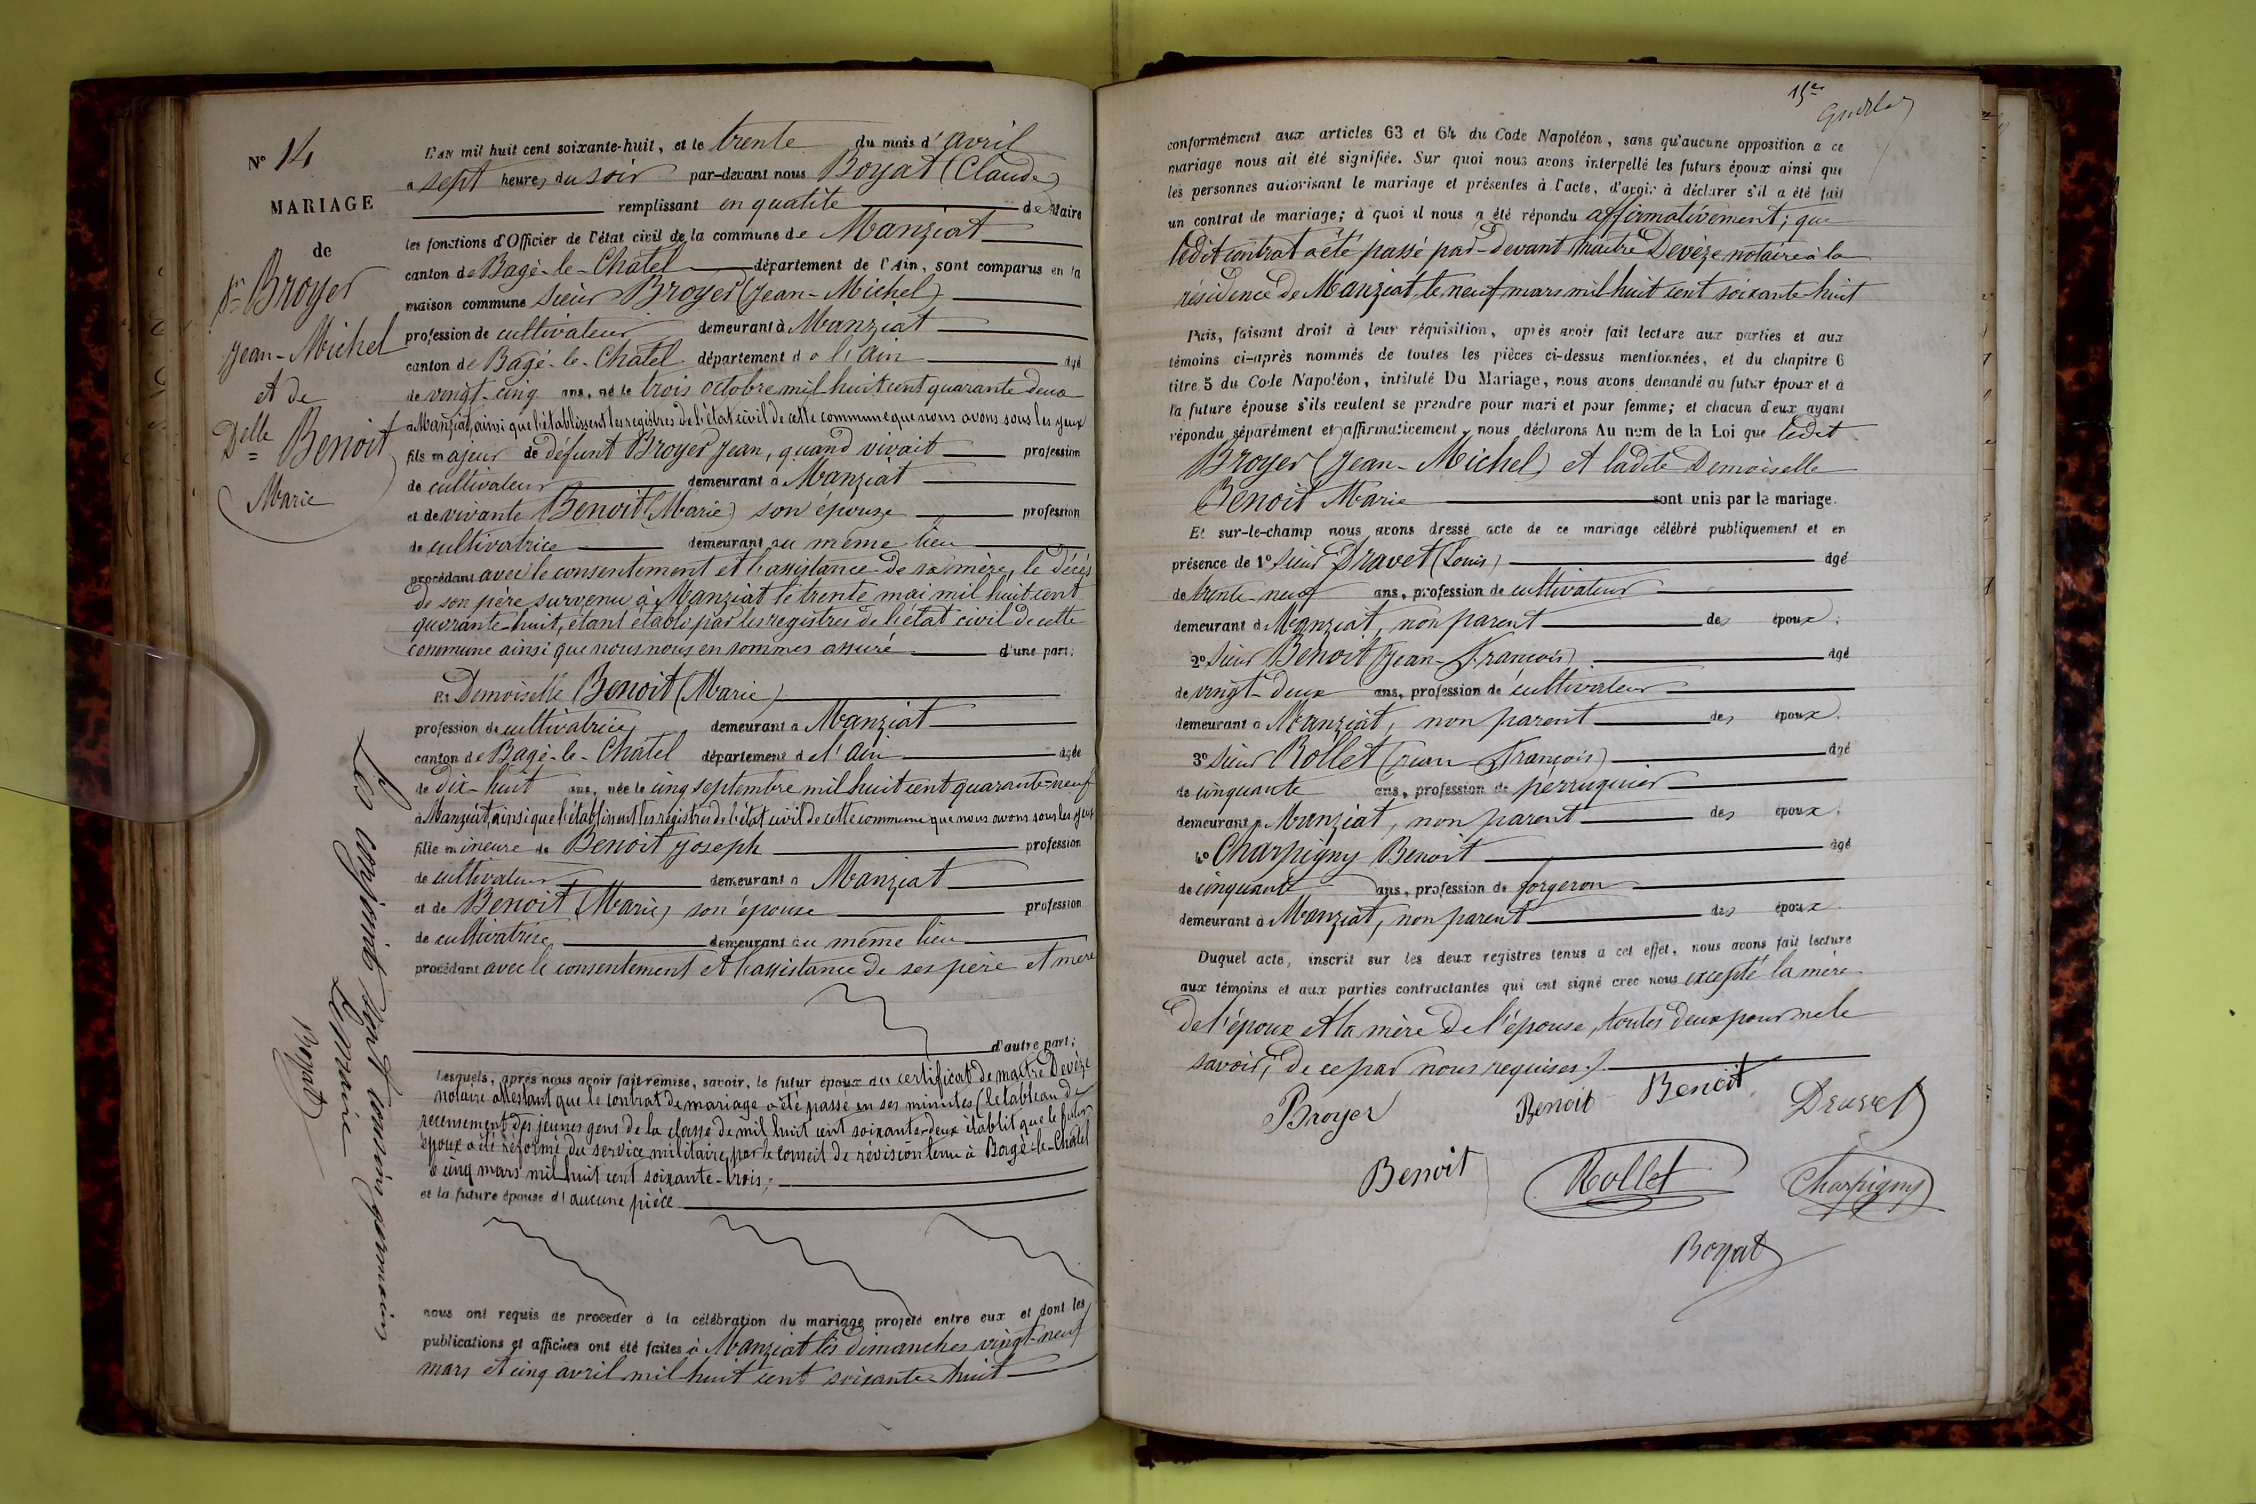 N° 14
MARIAGE
de
Sr Broyer
Jean-Michel
et de
Delle Benoit
Marie
Les conjoints sont cousins germains
Le maire
Boyat
L'AN mil huit cent soixante-huit, et le trente du mois d'avril
à sept heures du soir par-devant nous Boyat (Claude)
remplissant en qualité de Maire
les fonctions d'Officier de l'état civil de la commune de Manziat
canton de Bagé-le-Châtel département de l'Ain, sont comparus en la
maison commune sieur Broyer (Jean-Michel)
profession de cultivateur demeurant à Manziat
canton de Bagé-le-Châtel département de l'Ain âgé
de vingt-cinq ans, né le trois octobre mil huit cent quarante deux
à Manziat, ainsi que l'établissent les registres de l'état civil de cette commune que nous avons sous les yeux
fils majeur de défunt Broyer Jean, quand vivait profession
de cultivateur demeurant à Manziat
et de vivante Benoit (Marie) son épouse profession
de cultivatrice demeurant au même lieu
procédant avec le consentement et l'assistance de sa mère, le décès
de son père survenu à Manziat le trente mai mil huit cent
quarante-huit, étant établi par les registres de l'état civil de cette
commune ainsi que nous nous en sommes assuré d'une part;
Et Demoiselle Benoit (Marie)
profession de cultivatrice demeurant à Manziat
canton de Bagé-le-Châtel département de l'Ain âgée
de dix-huit ans, née le cinq septembre mil huit cent quarante-neuf
à Manziat, ainsi que l'établissent les registres de l'état civil de cette commune que nous avons sous les yeux
fille mineure de Benoit Joseph profession
de cultivateur demeurant à Manziat
et de Benoit (Marie) son épouse profession
de cultivatrice demeurant au même lieu
procédant avec le consentement et l'assistance de ses père et mère
d'autre part;
Lesquels, après nous avoir fait remise, savoir, le futur époux du certificat de maître Devèze
notaire attestant que le contrat de mariage a été passé en ses minutes (le tableau de
recensement des jeunes gens de la classe de mil huit cent soixante-deux établit que le futur
époux a été réformé du service militaire, par le conseil de révision tenu à Bagé-le-Châtel
le cinq mars mil huit cent soixante-trois;
et la future épouse d'aucune pièce
nous ont requis de procéder à la célébration du mariage projeté entre eux et dont les
publications et affiches ont été faites à Manziat les dimanches vingt-neuf
mars et cinq avril mil huit cent soixante-huit
15e
conformément aux articles 63 et 64 du Code Napoléon, sans qu'aucune opposition à ce
mariage nous ait été signifiée. Sur quoi nous avons interpellé les futurs époux ainsi que
les personnes autorisant le mariage et présentes à l'acte, d'avoir à déclarer s'il a été fait
un contrat de mariage; à quoi il nous a été répondu affirmativement; que
ledit contrat a été passé par-devant maître Devèze notaire à la
résidence de Manziat, le neuf mars mil huit cent soixante-huit
Puis, faisant droit à leur réquisition, après avoir fait lecture aux parties et aux
témoins ci-après nommés de toutes les pièces ci-dessus mentionnées, et du chapitre 6
titre 5 du Code Napoléon, intitulé Du Mariage, nous avons demandé au futur époux et à
la future épouse s'ils veulent se prendre pour mari et pour femme; et chacun d'eux ayant
répondu séparément et affirmativement, nous déclarons Au nom de la Loi que ledit
Broyer (Jean-Michel) et ladite Demoiselle
Benoit Marie sont unis par le mariage.
Et sur-le-champ nous avons dressé acte de ce mariage célébré publiquement et en
présence de 1° sieur Dravet (Louis) âgé
de trente-neuf ans, profession de cultivateur
demeurant à Manziat, non parent des époux;
2° sieur Benoit (Jean-François) âgé
de vingt-deux ans, profession de cultivateur
demeurant à Manziat, non parent des époux.
3° sieur Rollet (Jean-François) âgé
de cinquante ans, profession de perruquier
demeurant à Manziat, non parent des époux.
4° Charpigny Benoit âgé
de cinquante ans, profession de forgeron
demeurant à Manziat, non parent des époux.
Duquel acte, inscrit sur les deux registres tenus à cet effet, nous avons fait lecture
aux témoins et aux parties contractantes qui ont signé avec nous excepté la mère
de l'époux et la mère de l'épouse, toutes deux pour ne le
savoir, de ce par nous requises.
Broyer Benoit Benoit Dravet
Benoit Rollet Charpigny
Boyat